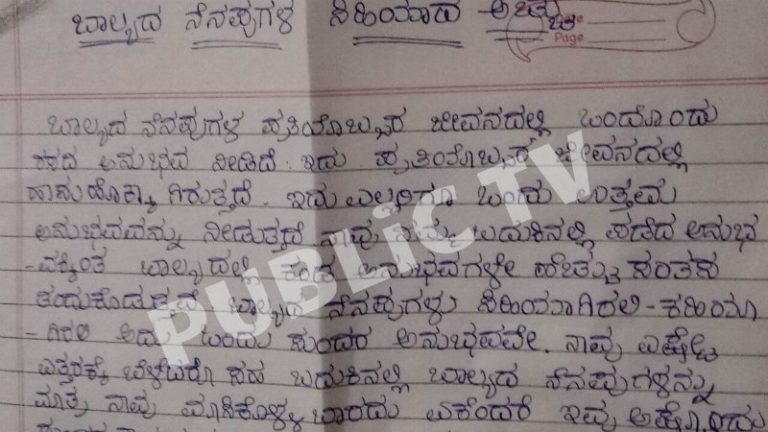 ಬಾಲ್ಯದ ನೆನಪುಗಳ ಸಿಹಿಯಾದ
Page
ಬಾಲ್ಯದ ನೆನಪುಗಳ ಪ್ರತಿಯೊಬ್ಬರ ಜೀವನದಲ್ಲಿ ಒಂದೊಂದು
ತರದ ಅನುಭವ ನೀಡಿದೆ. ಇದು ಪ್ರತಿಯೊಬ್ಬರ ಜೀವನದಲ್ಲಿ
ಇದು ಎಲ್ಲರಿಗೂ ಒಂದು ಉತ್ತಮ
ಅನುಭವವನ್ನು ನೀಡುತ್ತದೆ ನಾವು ನಮ್ಮ ಬದುಕಿನಲ್ಲಿ ಪಡೆದ ಅನುಭ
-ವಕ್ಕಿಂತ ಬಾಲ್ಯದಲ್ಲಿ ಕಂಡ ಅನುಭವಗಳೇ ಹೆಚ್ಚು ಸಂತಸ
ತಂದುಕೊಡುತ್ತವೆ ಬಾಲ್ಯದ ನೆನಪುಗಳು ಸಿಹಿಯಾಗಿರಲಿ-ಕಹಿಯಾ
-ಗಿರಲಿ ಅದು ಒಂದು ಸುಂದರ ಅನುಭವವೇ. ನಾವು ಎಷ್ಟೇ
ಎತ್ತರಕ್ಕೆ ಬೆಳೆದರೂ ಸಹ ಬದುಕಿನಲ್ಲಿ ಬಾಲ್ಯದ ನೆನಪುಗಳನ್ನು
ಮಾತ್ರ ನಾವು ಬಾರದು ಏಕೆಂದರೆ ಇವು
PUBLiC TV